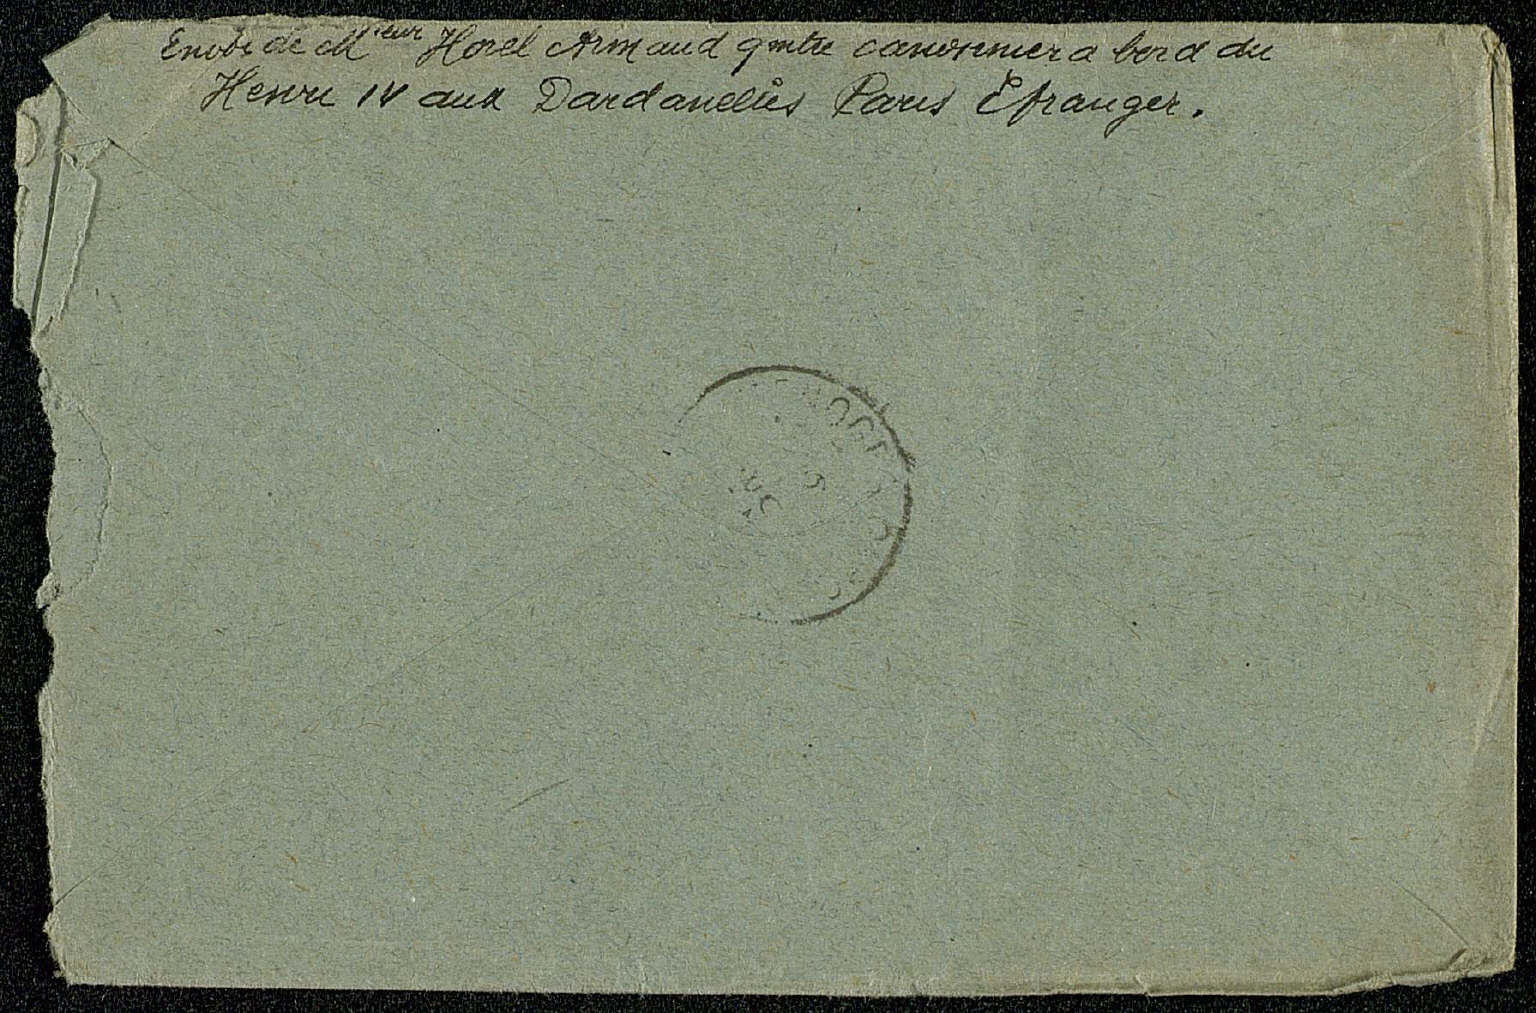 Envoi de M^ieur Horel Armand qmtre canonnier a bord du
Henri IV aux Dardanelles Paris Etranger.